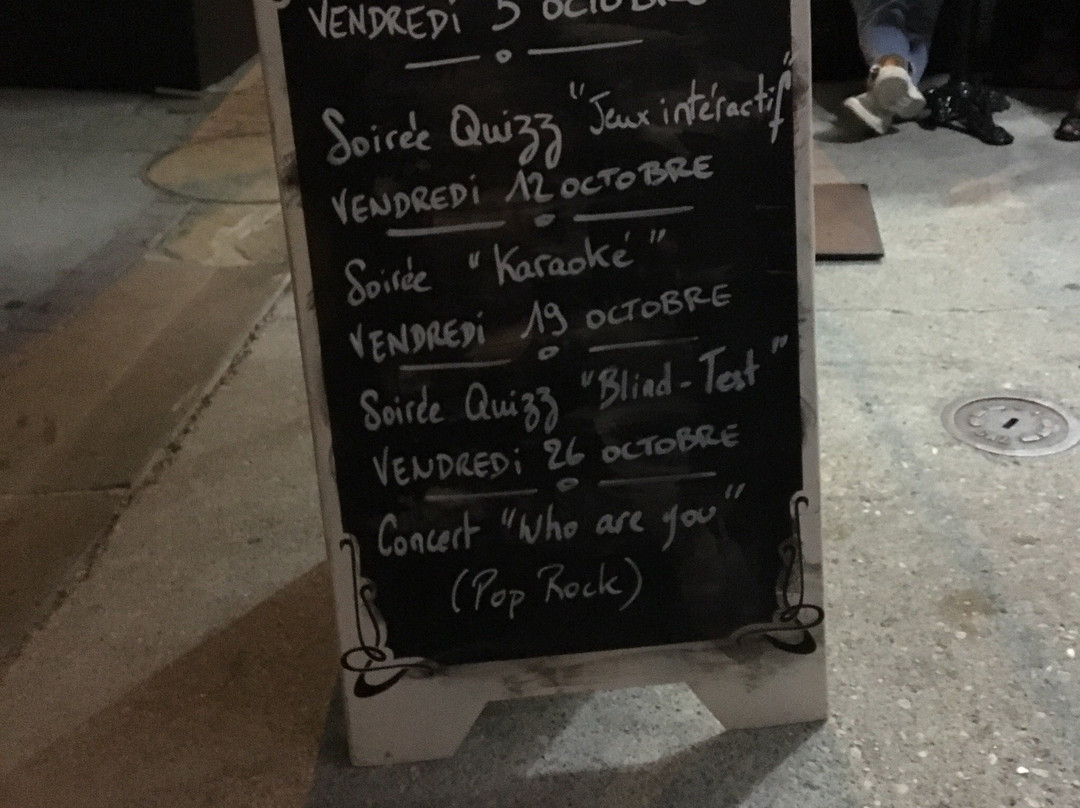 VENDREDi 5 OCTOBRE
Soirée Quizz "Jeux intéractif"
VENDREDi 12 OCTOBRE
Soirée "Karaoké"
VENDREDi 19 OCTOBRE
Soirée Quizz "Blind-Test"
VENDREDi 26 OCTOBRE
Concert "Who are you"
(Pop Rock)